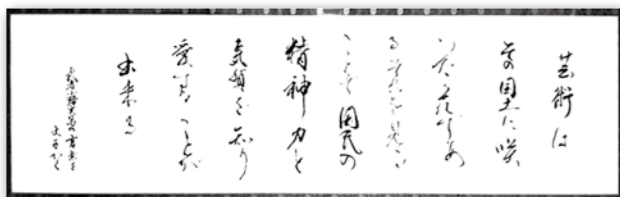 芸術は
その国土に咲
いた花であ
る芸術を見る
ことで国民の
精神力と
気質を知り
愛することが
出来る